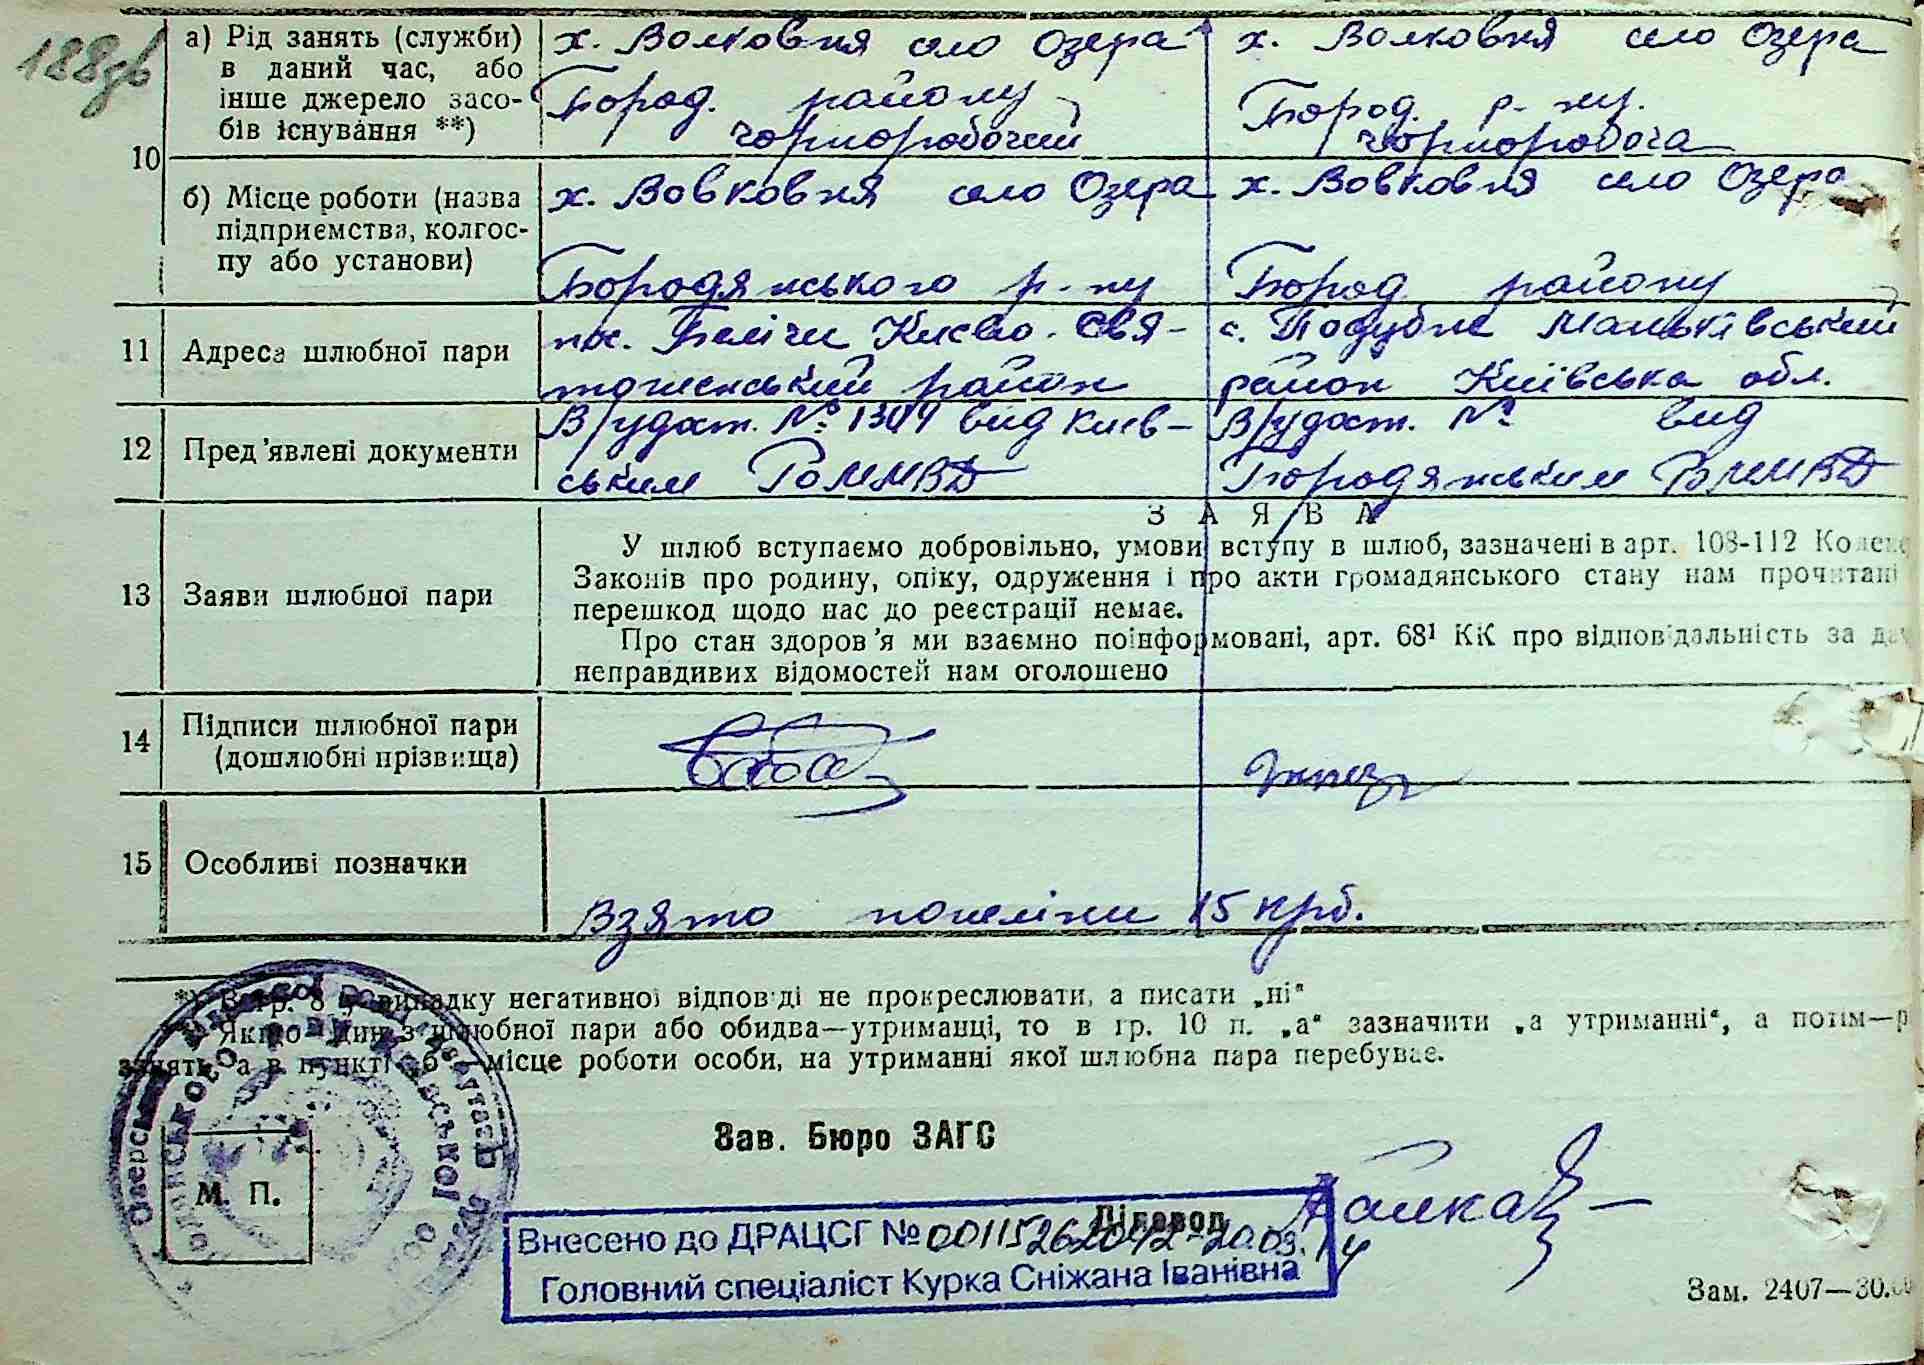 188зв
а) Рід занять (служби) х. Волковня село Озера х. Волковня село Озера
в даний час, або
інше джерело засо- Бород. району Бород. р-ну.
бів існування **) чорноробочий чорноробоча
10
б) Місце роботи (назва х. Вовковня село Озера х. Вовковня село Озера
підприємства, колгос-
пу або установи) Бородянського р-ну Бород. району
11 Адреса шлюбної пари пос. Беличи Києво-Свя- с. Подубне Маньківський
тошенський район район Київська обл.
12 Пред'явлені документи В/удост. № 1344 вид Києв- В/удост. № вид
ським РОММВД Бородянським РОММВД
З А Я В А
13 Заяви шлюбної пари
У шлюб вступаємо добровільно, умови вступу в шлюб, зазначені в арт. 108-112
Законів про родину, опіку, одруження і про акти громадянського стану нам прочитані
перешкод щодо нас до реєстрації немає.
Про стан здоров'я ми взаємно поінформовані, арт. 68¹ КК про відповідальність за
неправдивих відомостей нам оголошено
14 Підписи шлюбної пари
(дошлюбні прізвища)
15 Особливі позначки
Взято пошліни 15 крб.
*) В гр. 8 у випадку негативної відповіді не прокреслювати, а писати „ні"
Якщо один з шлюбної пари або обидва—утриманці, то в гр. 10 п. „а" зазначити „а утриманні", а потім—р
занять, а в пункті „б" місце роботи особи, на утриманні якої шлюбна пара перебуває.
Зав. Бюро ЗАГС
М. П.
Діловод
Внесено до ДРАЦСГ № 00115262042 20.03.14
Головний спеціаліст Курка Сніжана Іванівна
Зам. 2407—30.